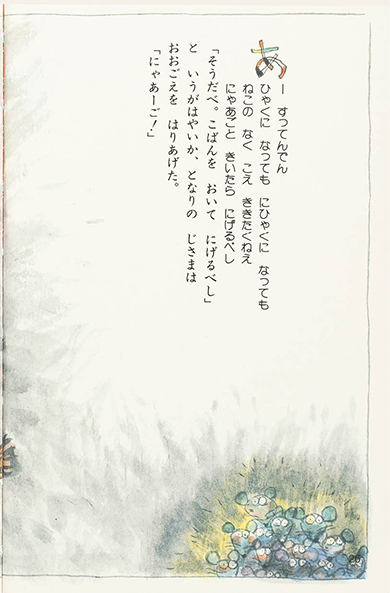 あー すってんでん
ひゃくに なっても にひゃくに なっても
ねこの なく こえ ききたぐねえ
にゃあごと きいたら にげるべし
「そうだべ。こばんを おいて にげるべし」
と いうがはやいか、となりの じさまは
おおごえを はりあげた。
「にゃあーご！」